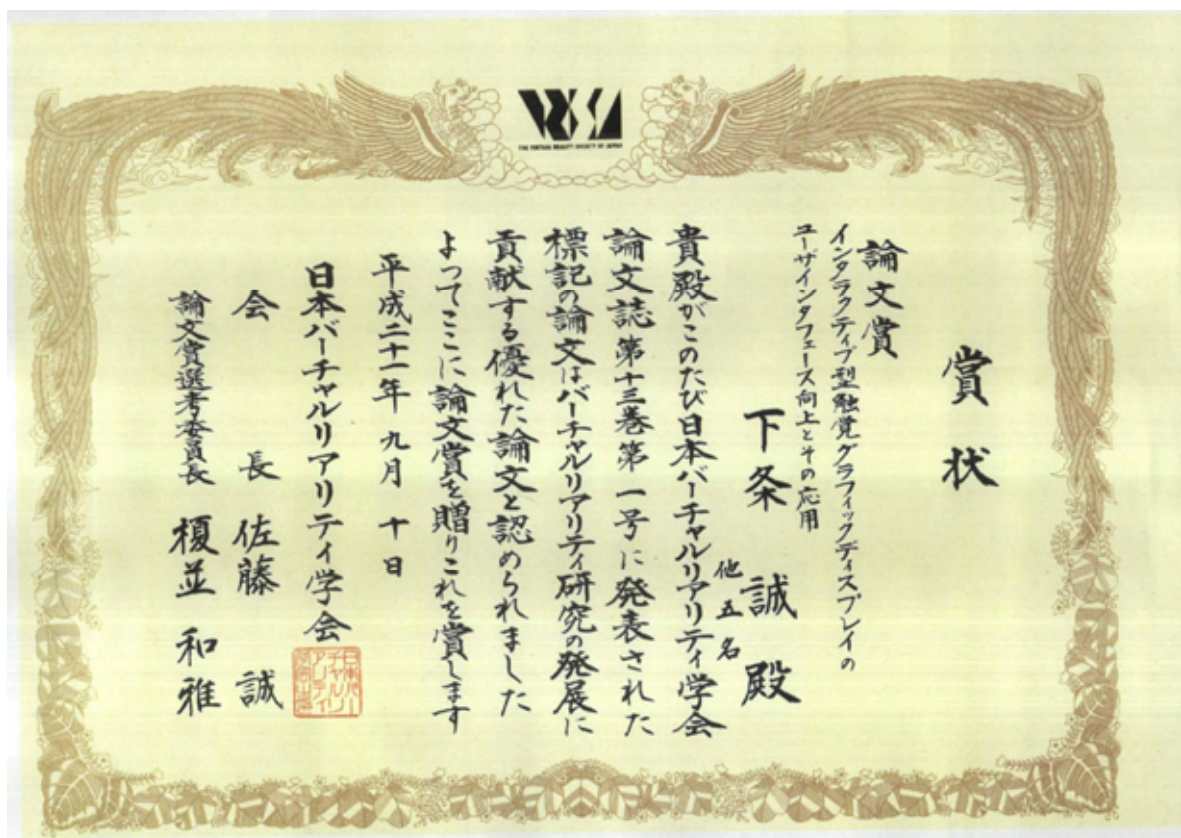 THE VIRTUAL REALITY SOCIETY OF JAPAN
賞状
論文賞
インタラクティブ型触覚グラフィックディスプレイの
ユーザインタフェース向上とその応用
下条 誠 殿
他五名
貴殿がこのたび日本バーチャルリアリティ学会
論文誌第十三巻第一号に発表された
標記の論文はバーチャルリアリティ研究の発展に
貢献する優れた論文と認められました
よってここに論文賞を贈りこれを賞します
平成二十一年 九月 十日
日本バーチャルリアリティ学会
会長 佐藤 誠
論文賞選考委員長 榎並 和雅